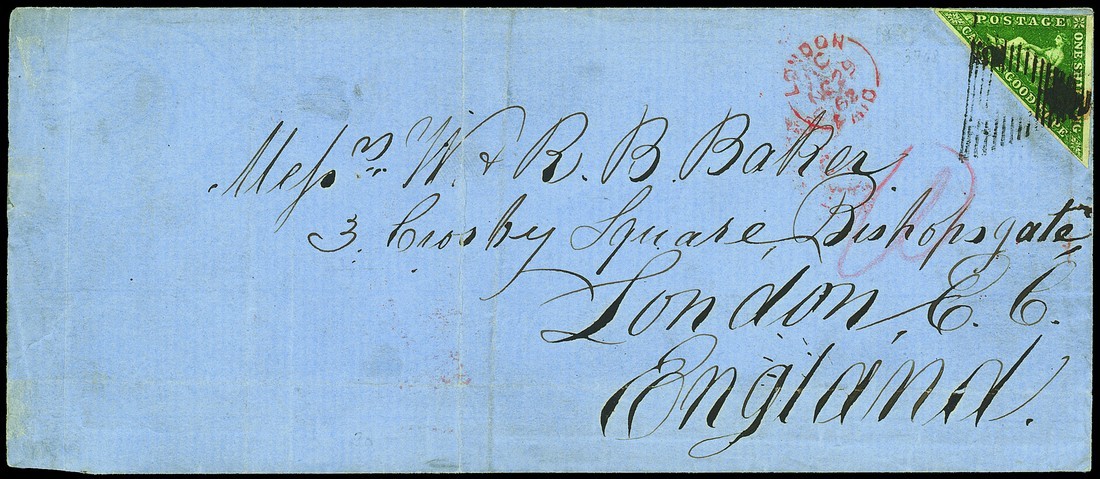 POSTAGE
ONE SHILLING
GOOD
LONDON
62
Messrs. W. & R. B. Baker
3. Crosby Square, Bishopsgate,
London, E. C.
England.